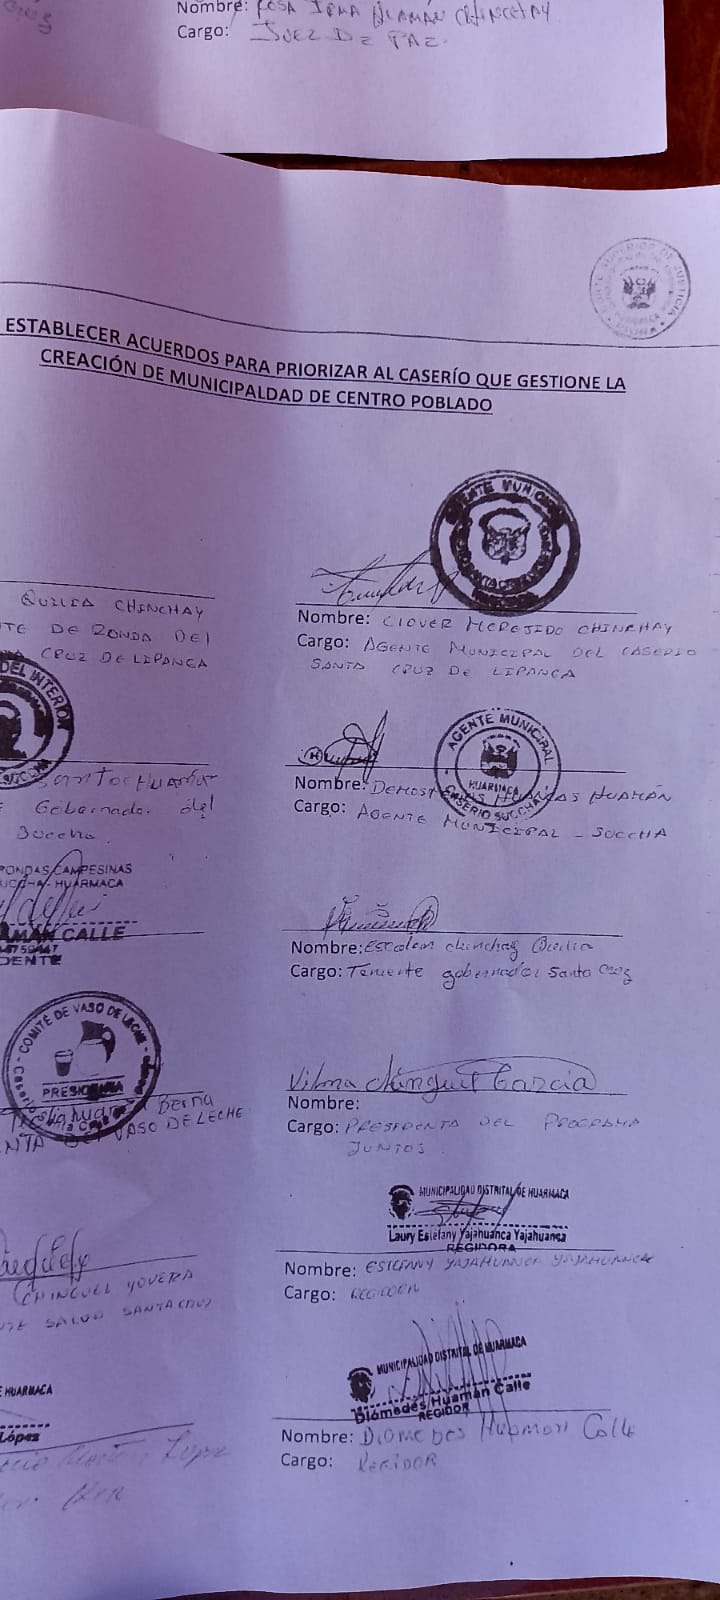 Nombre: ROSA IRMA HUAMÁN CHINCHAY
Cargo: JUEZ DE PAZ.
CORTE SUPERIOR DE JUSTICIA
ESTABLECER ACUERDOS PARA PRIORIZAR AL CASERÍO QUE GESTIONE LA
CREACIÓN DE MUNICIPALDAD DE CENTRO POBLADO
AGENTE MUNICIPAL
QUILIA CHINCHAY
TE DE RONDA DEL
CRUZ DE LIPANGA
Nombre: CLOVER MEREJIDO CHINCHAY
Cargo: AGENTE MUNICIPAL DEL CASERIO
SANTA CRUZ DE LIPANGA
DEL INTERIOR
SUCCHA
Santos Huamán
Gobernador del
Succha
AGENTE MUNICIPAL
HUARMACA
CASERIO SUCCHA
Nombre: HUAMÁN
Cargo: AGENTE MUNICIPAL - SUCCHA
RONDAS CAMPESINAS
SUCCHA - HUARMACA
AMÁN CALLE
DENTE
Nombre: Escolem chinchay Quilia
Cargo: Teniente gobernador Santa Cruz
COMITÉ DE VASO DE LECHE
PRESIDENTA
Berna
NTA DEL VASO DE LECHE
Vilma chinguel Garcia
Nombre:
Cargo: PRESIDENTA DEL PROGRAMA
JUNTOS.
MUNICIPALIDAD DISTRITAL DE HUARMACA
Laury Estefany Yajahuanca Yajahuanca
REGIDORA
Nombre: ESTEFANY YAJAHUANCA YAJAHUANCA
Cargo: REGIDORA
CHINGUEL YOVERA
TE SALUD SANTA CRUZ
MUNICIPALIDAD DISTRITAL DE HUARMACA
Diómedes Huamán Calle
REGIDOR
Nombre: DIOMEDES HUAMAN Calle
Cargo: REGIDOR
E HUARMACA
López
Lopez